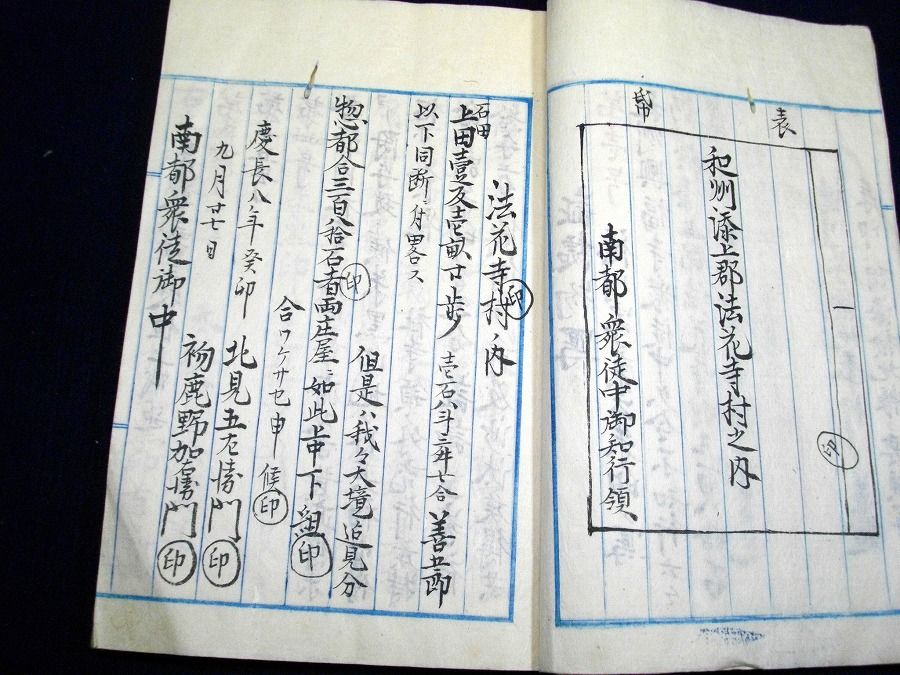 表
帋
和州添上郡法花寺村之内
印
南都衆徒中御知行領
法花寺村ノ内
印
石田
上田壹反壱畝廿歩 壱石八斗三舛七合 善五郎
以下同断ニ付畧ス
但是ハ我々大境迄見分
惣都合三百八拾石者両庄屋ニ如此上中下組
印
印
合ワケサセ申候
印
慶長八年癸卯
九月廿七日
北見五左衛門
印
初鹿野加右衛門
印
南都衆徒御中